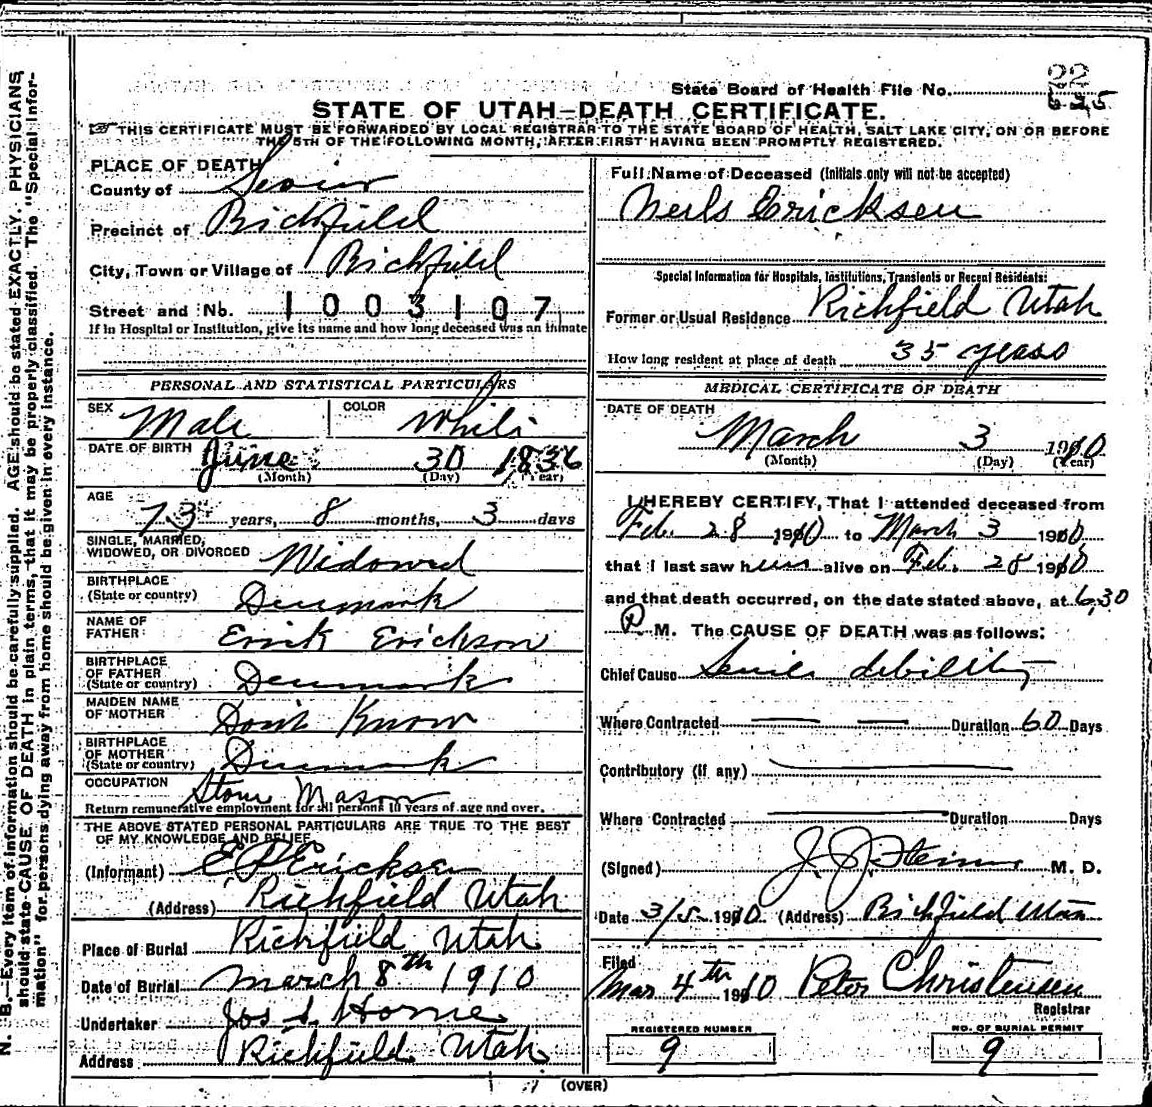 22
State Board of Health File No. 625
STATE OF UTAH—DEATH CERTIFICATE.
THIS CERTIFICATE MUST BE FORWARDED BY LOCAL REGISTRAR TO THE STATE BOARD OF HEALTH, SALT LAKE CITY, ON OR BEFORE
THE 5TH OF THE FOLLOWING MONTH, AFTER FIRST HAVING BEEN PROMPTLY REGISTERED.
PLACE OF DEATH
County of Sevier
Precinct of Richfield
City, Town or Village of Richfield
Street and No. 1003107
If in Hospital or Institution, give its name and how long deceased was an inmate
PERSONAL AND STATISTICAL PARTICULARS
SEX Male COLOR White
DATE OF BIRTH June 30 1836
(Month) (Day) (Year)
AGE
73 years, 8 months, 3 days
SINGLE, MARRIED,
WIDOWED, OR DIVORCED Widowed
BIRTHPLACE
(State or country) Denmark
NAME OF
FATHER Erick Erickson
BIRTHPLACE
OF FATHER
(State or country) Denmark
MAIDEN NAME
OF MOTHER Dont Know
BIRTHPLACE
OF MOTHER
(State or country) Denmark
OCCUPATION Stone Mason
Return remunerative employment for all persons 10 years of age and over.
THE ABOVE STATED PERSONAL PARTICULARS ARE TRUE TO THE BEST
OF MY KNOWLEDGE AND BELIEF
(Informant) E P Ericksen
(Address) Richfield Utah
Place of Burial Richfield Utah
Date of Burial March 8th 1910
Undertaker Jos S. Horne
Address Richfield Utah
Full Name of Deceased (Initials only will not be accepted)
Neils Ericksen
Special Information for Hospitals, Institutions, Transients or Recent Residents:
Former or Usual Residence Richfield Utah
How long resident at place of death 35 years
MEDICAL CERTIFICATE OF DEATH
DATE OF DEATH
March 3 1910
(Month) (Day) (Year)
I HEREBY CERTIFY, That I attended deceased from
Feb. 28 1910 to March 3 1910
that I last saw him alive on Feb. 28 1910
and that death occurred, on the date stated above, at 6,30
P M. The CAUSE OF DEATH was as follows:
Chief Cause Senile debility
Where Contracted Duration 60 Days
Contributory (if any)
Where Contracted Duration Days
(Signed) J. J. Steiner M. D.
Date 3/5 1910 (Address) Richfield Utah
Filed
Mar 4th 1910 Peter Christensen
Registrar
REGISTERED NUMBER
9
NO. OF BURIAL PERMIT
9
(OVER)
N. B.—Every item of information should be carefully supplied. AGE should be stated EXACTLY. PHYSICIANS
should state CAUSE OF DEATH in plain terms, that it may be properly classified. The "Special Infor-
mation" for persons dying away from home should be given in every instance.